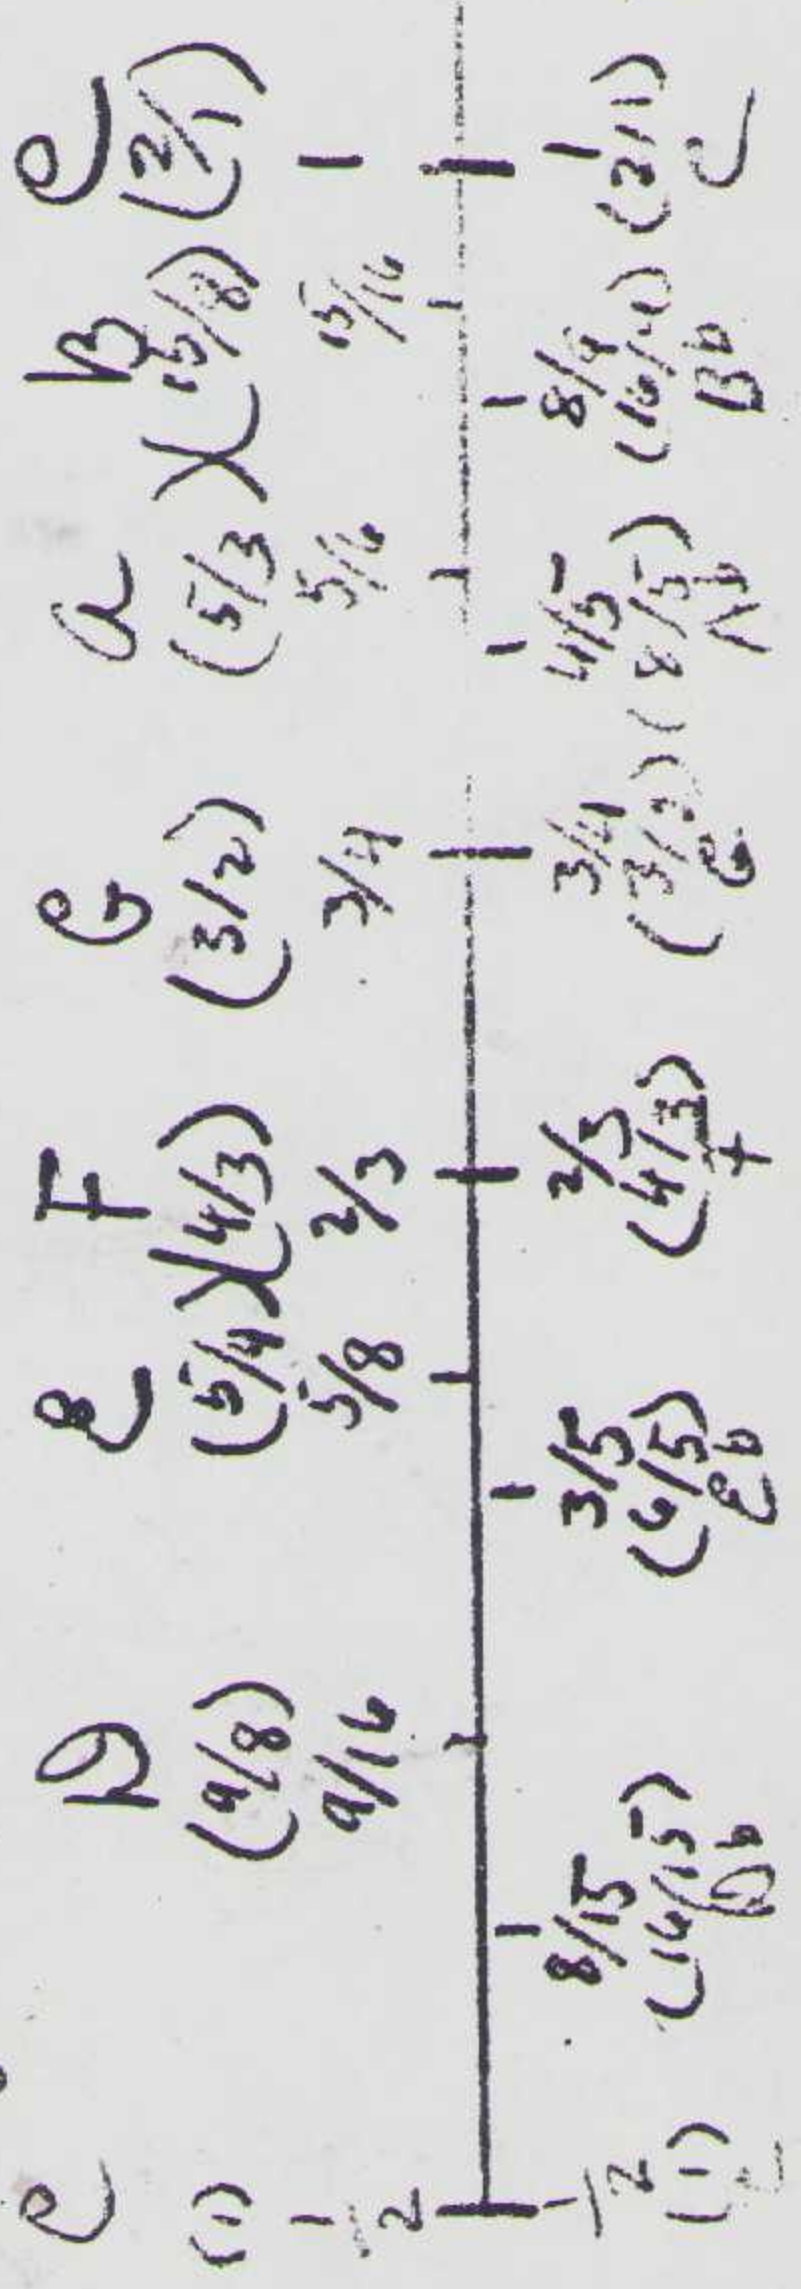 C D E F G A B C
(1) (9/8) (5/4) (4/3) (3/2) (5/3) (15/8) (2/1)
1/2 9/16 5/8 2/3 3/4 5/6 15/16 1
1/2 8/15 3/5 2/3 3/4 4/5 8/9 1
(1) (16/15) (6/5) (4/3) (3/2) (8/5) (16/9) (2/1)
C Db Eb F G Ab Bb C